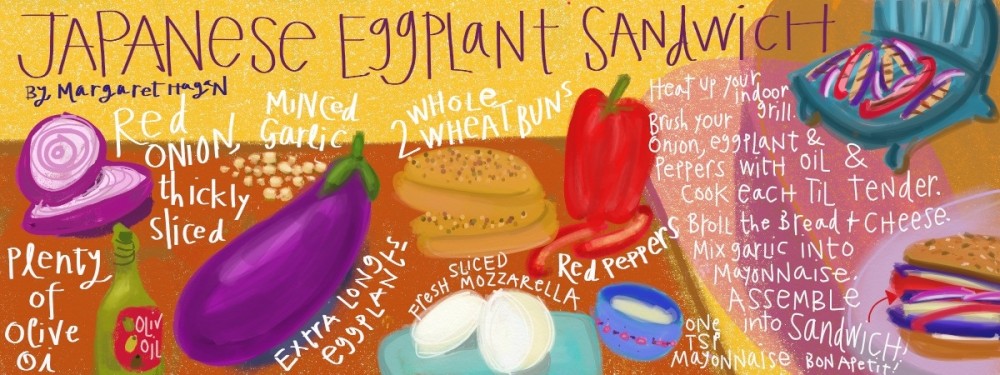 JAPANESE EGGPLANT SANDWICH
By Margaret Hagen
Red
ONION,
thickly
sliced
MiNCed
Garlic
2 WHOLE
WHEAT BUNS
Plenty
of
Olive
Oi
OLIV
OIL
EXTRA LONG
EGGPLANTS
SLICED
FresH MOZZARELLA
Red PePPeRS
ONE
TSP
MAYONNAISE
Heat up your
indoor
grill.
Brush your
Onion, eggplant &
Peppers with oil &
Cook each TiL Tender.
Broil the Bread + Cheese.
Mix garlic INTO
MAYONNAISE.
ASSEMBLE
into SANDWICH!
BON APetit!